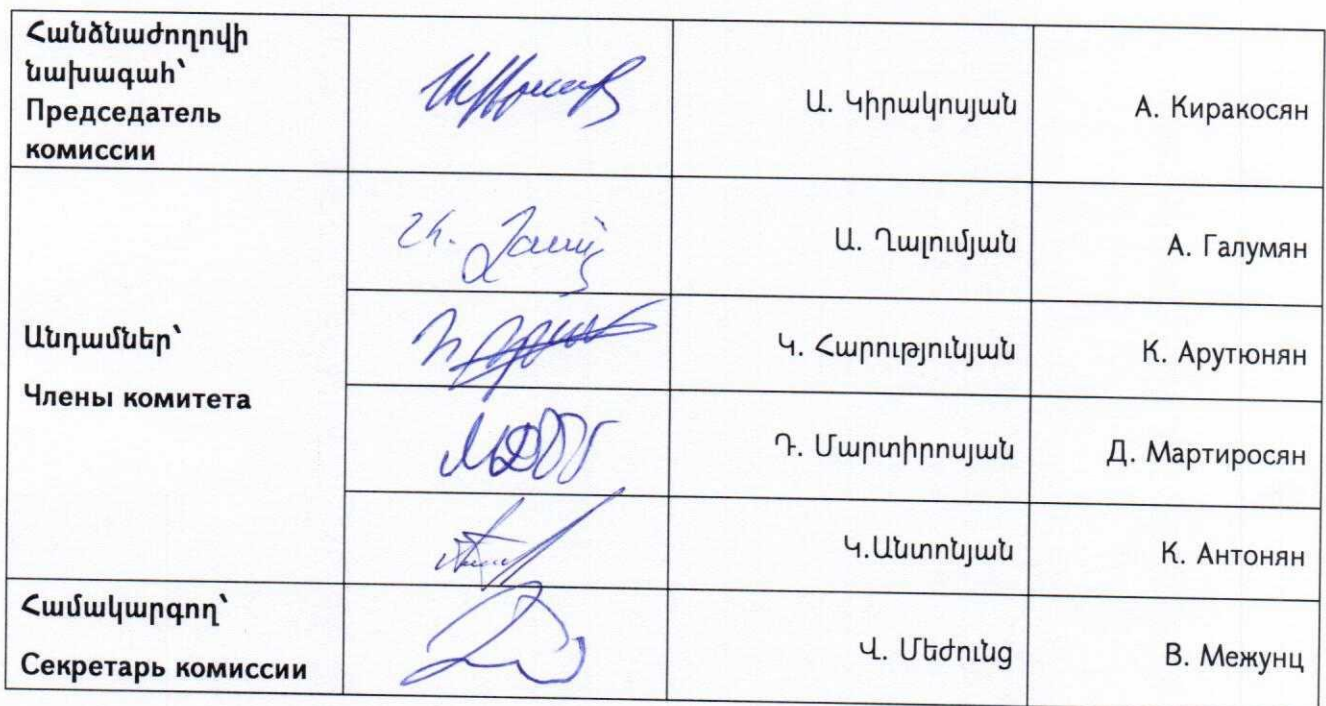 Հանձնաժողովի
նախագահ՝
Председатель
комиссии
Ա. Կիրակոսյան
А. Киракосян
Ա. Ղալումյան
А. Галумян
Անդամներ՝
Члены комитета
Կ. Հարությունյան
К. Арутюнян
Դ. Մարտիրոսյան
Д. Мартиросян
Կ.Անտոնյան
К. Антонян
Համակարգող՝
Секретарь комиссии
Վ. Մեժունց
В. Межунц